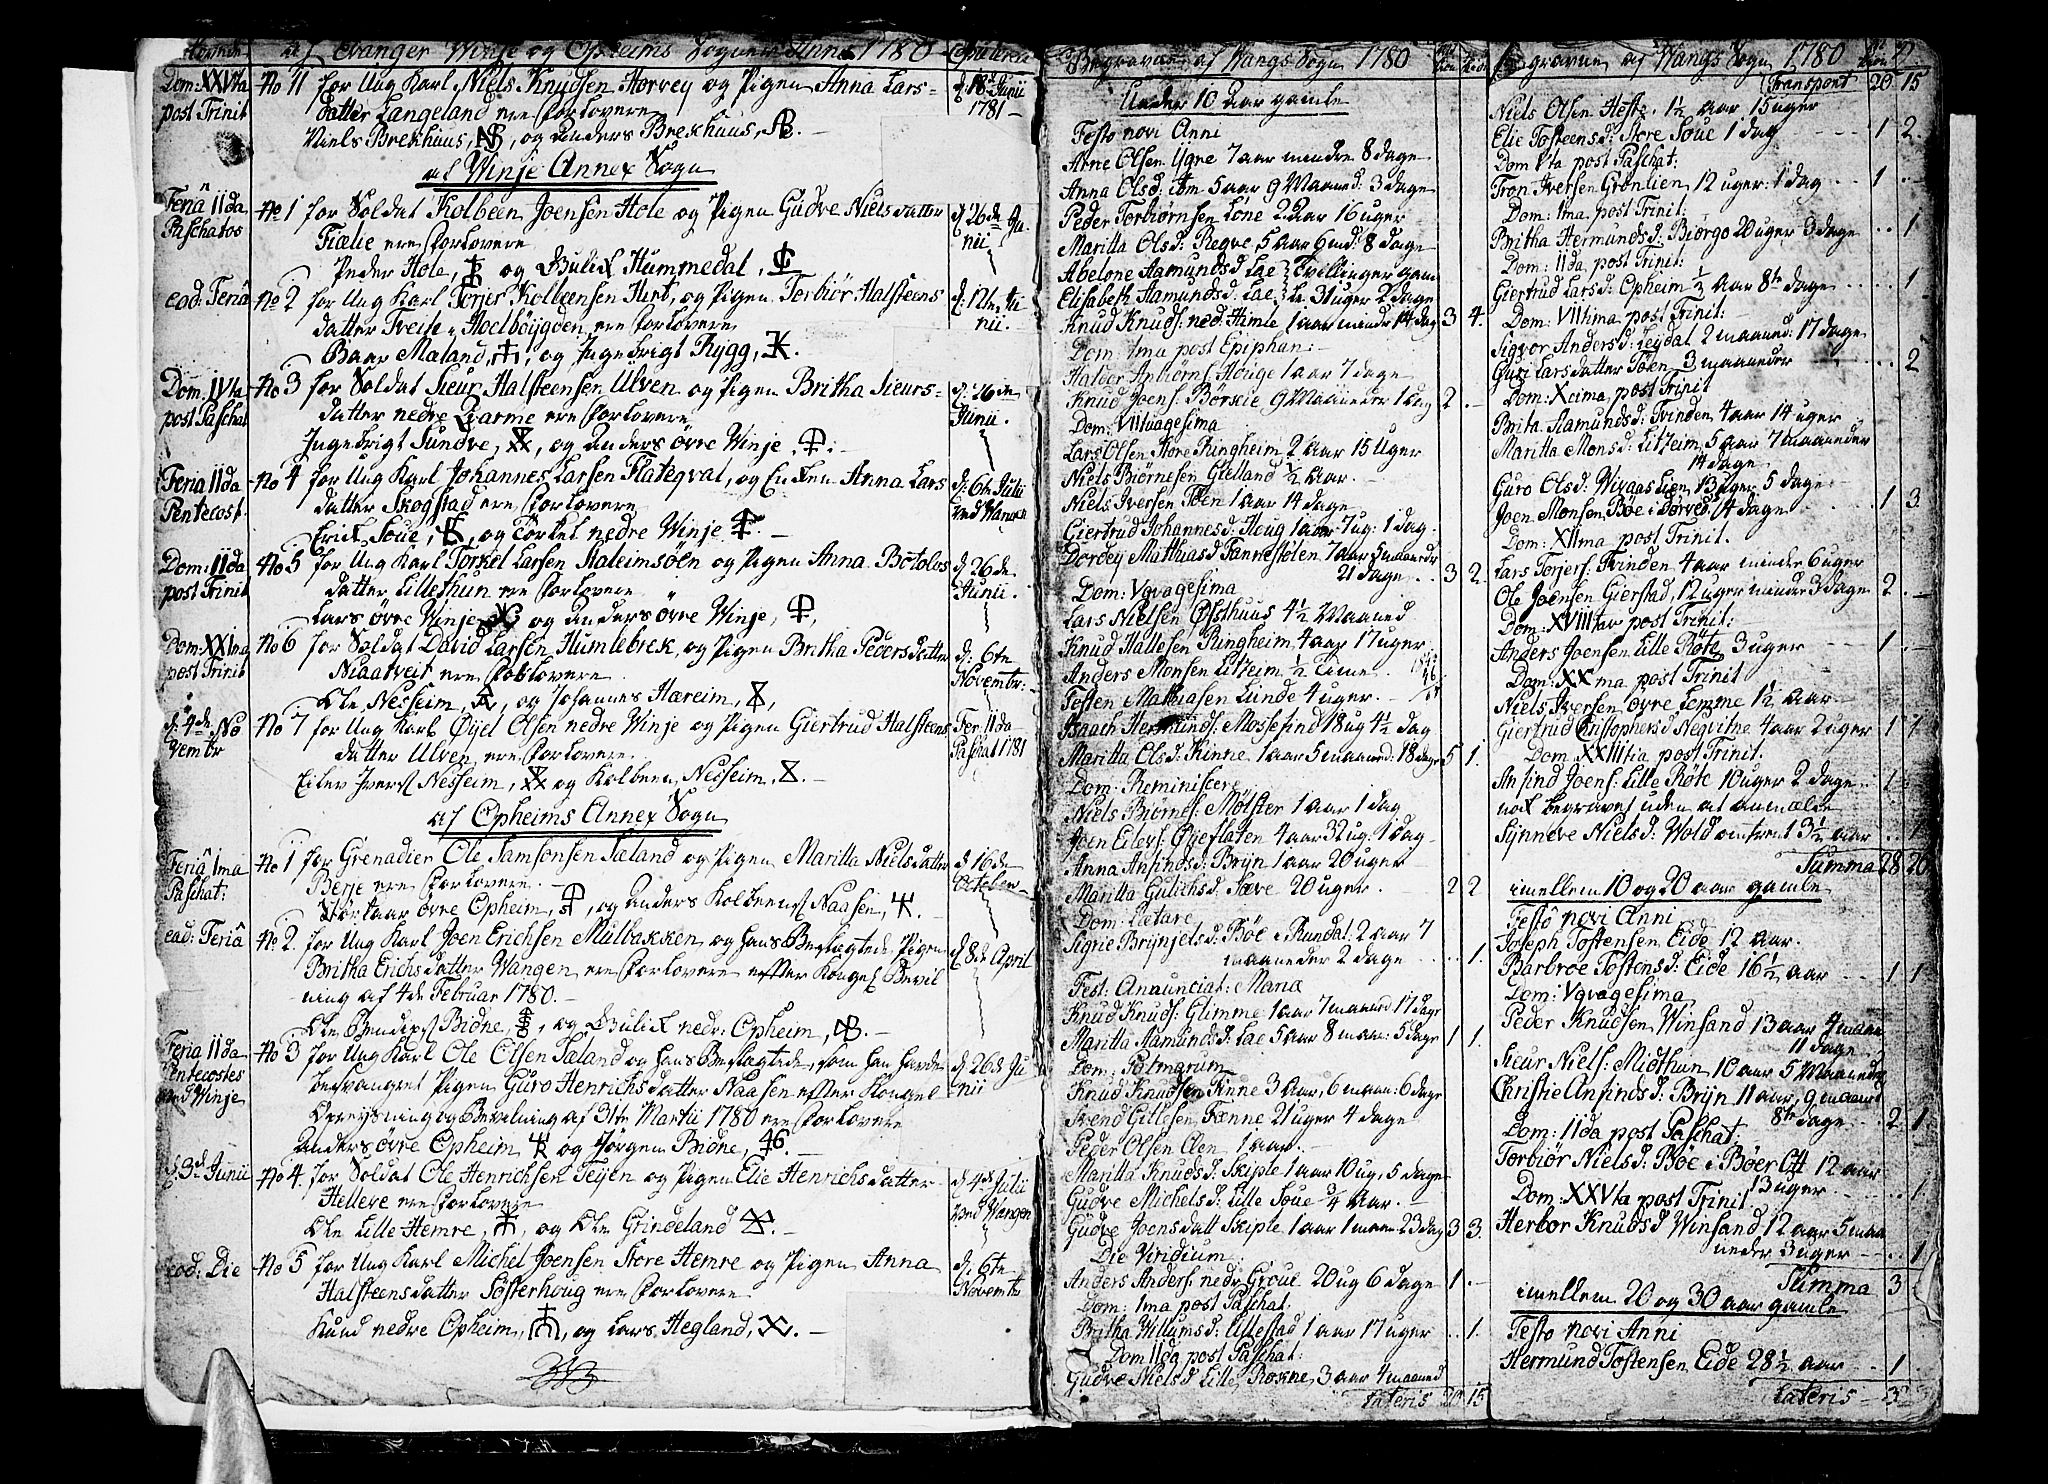 af Evanger Winje og Opheims Sogner Anno 1780
Dom: XXVta post Trinit
No 11 for Ung Karl Niels Knudsen Horvey og Pigen Anna Lars-
datter Langeland ere Forlovere
Niels Brekhuus, og Anders Brekhuus,
d. 18d Junii 1781
af Winje Annex Sogn
Feriâ IIda Paschatos
No 1 for Soldat Kolbeen Joensen Hole og Pigen Gudve Nielsdatter
Fiælie ere Forlovere
Peder Hole, og Gulik Hummedal,
d. 26de Junii
ead: Feriâ
No 2 for Ung Karl Torjer Kolbensen Hirt, og Pigen Torbiör Halsteens
datter Treite i Hoelböygden, ere Forlovere
Baar Maland, og Ingebrigt Rygg,
d: 12te Junii.
Dom: IVta post Paschat
No 3 for Soldat Sieur Halsteensen Ulven og Pigen Britha Sieurs-
datter nedre ere Forlovere
Ingebrigt Sundve, og Anders övre Winje,
d: 26de Junii.
Feria IIda Pentecost.
No 4 for Ung Karl Johannes Larsen Flateqval, og Enken Anna Lars
datter Skogstad ere Forlovere
Erick Soue, og Torkel nedre Winje
d: 6te Julii ved Wangen
Dom: IIda post Trinit
No 5 for Ung Karl Torkel Larsen Staleimsöln og Pigen Anna Botolvs
datter Lillethun ere Forlovere
Lars övre Winje og Anders övre Winje,
d. 26de Junii.
Dom: XXIma post Trinit
No 6 for Soldat David Larsen Humlebrek, og Pigen Britha Pedersdatter
Niaatveit ere Forlovere
Ole Nesheim, og Johannes Hæreim,
d. 6te Novembr:
d. 4de Novembr
No 7 for Ung Karl Öyel Olsen nedre Winje og Pigen Giertrud Halsteens
datter Ulven, ere Forlovere
Eilev Ivers: Nesheim, og Kolbeen Nesheim,
Fer IIda Paschat 1781
af Opheims Annex Sogn
Feriâ Ima Paschat:
No 1 for Grenadier Ole Samsonsen Saland og Pigen Maritta Nielsdatter
Berje ere Forlovere.
övre Opheim, og Anders Kolbeens: Naasen,
d 16de October
ead: Feriâ
No 2. for Ung Karl Joen Erichsen Mülbakken, og hans Beslægtede Pigen
Britha Erichsdatter Wangen, ere Forlovere efter Kongel Bevil
ning af 4de Februar 1780.
Ole Bendix: Bidne, og Gulik nedr: Opheim,
d 8de April
Feria IIda Pentecostes ved Winje
No 3 for Ung Karl Ole Olsen Saland og hans Beslægtede, som han havde
besvangret Pigen Guro Henrichsdatter Naasen efter Kongel
Opreysning og Bevilning af 31te Martii 1780 ere Forlovere
Anders övre Opheim og Jörgen Bidne,
d 26de Junii
d: 3d Junii
No 4. for Soldat Ole Henrichsen Teijen og Pigen Elie Henrichsdatter
Helleve ere Forlovere
Ole Lille Hemre, og Ole Grindeland
d 4de Julii ved Wangen
eod: Die
No 5 for Ung Karl Michel Joensen Store Hemre og Pigen Anna
Halsteensdatter Sösterhoug ere Forlovere
Knud nedre Opheim, og Lars Hegland,
d. 6te Novembr
Begravne af Wangs Sogn 1780
Under 10 Aar gamle
Festo novi Anni
Arne Olsen Ygre 7 aar mindre 8 dage
Anna Olsd: ibm 5 aar 9 Maaned: 3 dage
Peder Torbiörnsen Löne 2 Aar 16 uger
Maritta Olsd: Reqve 5 aar 6 md: 8 dage
Abelone Aamundsd Lae Tvillinger gam
Elisabeth Aamundsd: Lae le 3 uger 2 dage
Knud Knuds: ned: Himle 1 aar mindr 14 dag 3 4.
Dom: Ima post Epiphan:
Haldor Anbiörns: Houge 1 aar 7 dage
Knud Joens: Börskie 9 Maaneder 1 dag 2 -
Dom: VIItuagesima
Lars Olsen Store Ringheim 2 aar 15 Uger
Niels Biörnesen Gielland ½ Aar.
Niels Iversen Töen 1 aar 14 dage
Giertrud Johannesd: Houg 1 aar 7 ug: 1 dag.
Dordey Mathiasd Tannestölen 7 aar 5 maaneder
21 dage 3 2.
Dom: Vqvagesima
Lars Nielsen Östhuus 4½ Maaned
Knud Hallesen Ringheim 4 aar 17 uger
Anders Monsen Litzeim ½ time
Tosten Mathiasen Lunde 4 uger.
Isaach Hermunds: Mossefind 18 ug 4½ dag
Maritta Olsd: Kinne 1 aar 5 maaned: 18 dage 5 1.
Dom: Reminiscere
Niels Biörnes: Mölster 1 aar 1 dag
Joen Eilevs: Qveflaten 4 aar 32 ug. 1 dag
Anna Ansindsd: Bryn 1 aar 20 uger
Maritta Gulichsd: Sæve 20 uger. 2 2
Dom: Lætare
Sigrie Brynjelsd: Böe i Rundal. 2 aar 7
maaneder 2 dage 1.
Fest: Anunciat: Mariæ
Knud Knuds: Glimme 1 aar 7 maaned 17 dage
Maritta Aamundsd: Lae 5 aar 8 maan: 5 dage 1 1.
Dom: Palmarum
Knud Knudsen Kinne 3 Aar, 6 maan: 6 dage
Svend Gillsen Fænne 21 uger 4 dage
Peder Olsen Clen 1 aar.
Maritta Knudsd: Skiple 1 aar 10 ug, 5 dage
Gudve Michelsd: Lille Soue ¾ Aar.
Gudve Joensdatt Skiple 1 aar 1 maan 23 dag 3 3.
Die Viridium
Anders Anders: nedr Groue 20 ug 6 dage 1 -
Dom: Ima post Paschat.
Britha Willumsd: Ullestad 1 aar 17 uger 1.
Dom IIda post Paschat:
Gudve Nielsd Lille Rokne, 3 aar 4 maaned
Lateris 20 15
Begravne af Wangs Sogn 1780
Transport 20 15
Niels Olsen Hefte, 1½ aar 15 uger
Elie Tosteensd: Store Soue 1 dag 1 2.
Dom Vta post Paschat:
Tron Iversen Grönlien 12 uger 1 dag 1 -
Dom: Ima post Trinit:
Britha Hermundsd: Biörgo 20 uger 3 dage 1
Dom: IIda post Trinit:
Giertrud Larsd: Opheim ½ Aar 8te dage 1
Dom: VIItima post Trinit:
Sigvor Andersd: Leydal 2 maaned: 17 dage
Guri Larsdatter Töen 3 maaneder 2
Dom: Xcima post Trinit
Brita Aamundsd: Tvinden 4 aar 14 uger
Maritta Monsd: Litzeim 5 aar 7 maaneder
14 dage
Guro Olsd: Wivaaslien 13 uger 5 dage
Joen Monsen Böe i Börved: 14 dage 1 3
Dom: XIIma post Trinit.
Lars Torjers: Tvinden 4 aar mindre 6 uger
Ole Joensen Gierstad, 12 uger mindre 3 dage 2 -
Dom: XVIIItav post Trinit:
Anders Joensen Lille Röte 3 uger 1 -
Dom: XXma post Trinit
Niels Iversen övre Lemme 1½ Aar.
Giertrud Christophersd Neqvitne 4 aar 2 uger 1 1
Dom: XXIIItia post Trinit.
Ansind Joens: Lille Röte 10 uger 2 dage 1
nok begravet uden at anmælde
Synneve Nielsd: Wold omtrent 3½ aar 1
Summa 28 26
imellem 10 og 20 aar gamle
Festô novi Anni
Joseph Tostensen Eide 12 aar.
Barbroe Tostensd: Eide 16½ aar 1 1
Dom: Vqvagesima
Peder Knudsen Winsand 13 aar 4 maan
11 dage
Sieur Niels: Midthun 10 aar 5 Maaneder
Christie Ansindsd: Bryn 11 aar, 9 maaned
8te dage 2 1
Dom: IIda post Paschat:
Torbiör Nielsd: Böe i Böer Ott 12 aar
13 uger 1
Dom: XXVta post Trinit
Herbor Knudsd Winsand 12 aar 5 maa
neder 3 uger 1
Summa 3
imellem 20 og 30 aar gamle
Festo novi Anni
Hermund Tostensen Eide 28½ aar 1
Lateris 3